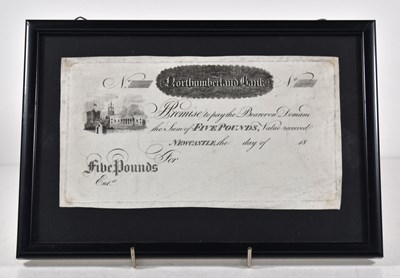 No. Northumberland Bank No.
I Promise to pay the Bearer on Demand
the Sum of FIVE POUNDS, Value received
NEWCASTLE, the day of 18
For
Five Pounds
Ent.d